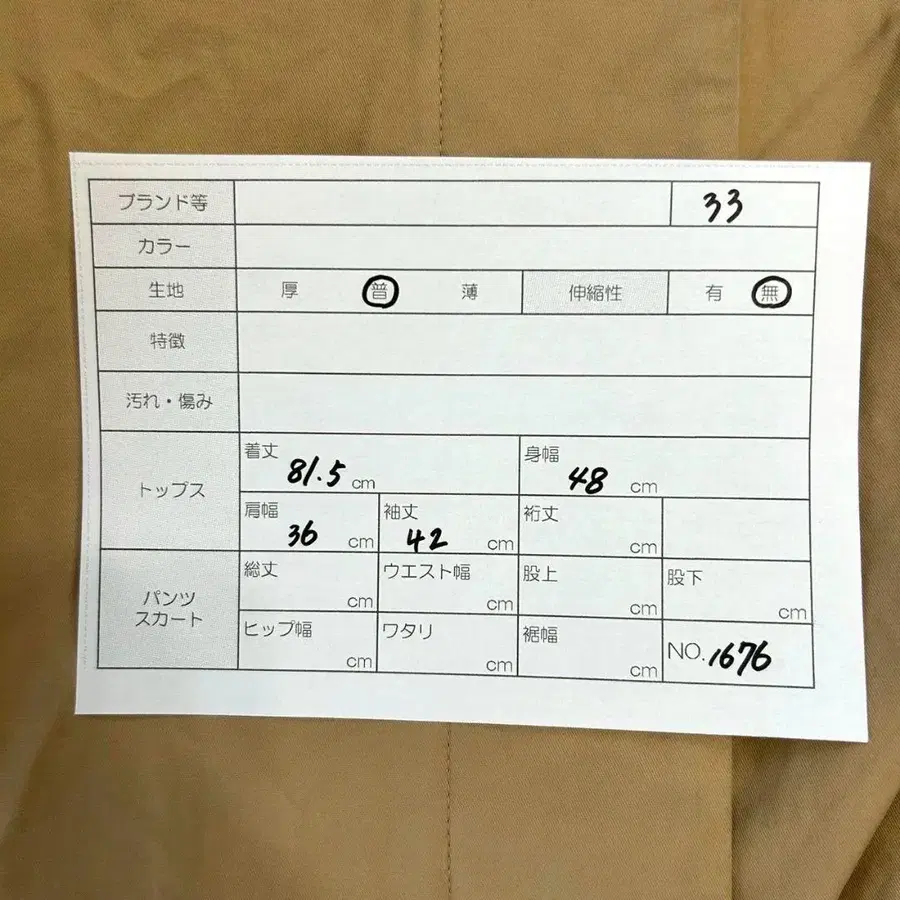 ブランド等 33
カラー
生地 厚 普 薄 伸縮性 有 無
特徴
汚れ・傷み
トップス
着丈 81.5 cm 身幅 48 cm
肩幅 36 cm 袖丈 42 cm 裄丈 cm
パンツ
スカート
総丈 cm ウエスト幅 cm 股上 cm 股下 cm
ヒップ幅 cm ワタリ cm 裾幅 cm NO. 1676